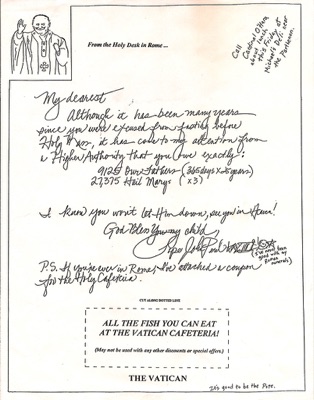 From the Holy Desk in Rome ...
Call
Cardinal O'Hara
about lunch
this Friday at
Michael's Deli near
the Pantheon.
My dearest
Although it has been many years
since you were excused from fasting before
Holy Mass, it has come to my attention from
a Higher Authority that you owe exactly:
9125 Our Fathers (365 days x 25 years)
27,375 Hail Marys (x3)
I know you won't let Him down, see you in Heaven!
God Bless you, my child,
Pope John Paul
(I've never been
good with my
Roman
numerals)
P.S. If you're ever in Rome, I've attached a coupon
for the Holy Cafeteria.
CUT ALONG DOTTED LINE
ALL THE FISH YOU CAN EAT
AT THE VATICAN CAFETERIA!
(May not be used with any other discounts or special offers.)
THE VATICAN
It's good to be the Pope.